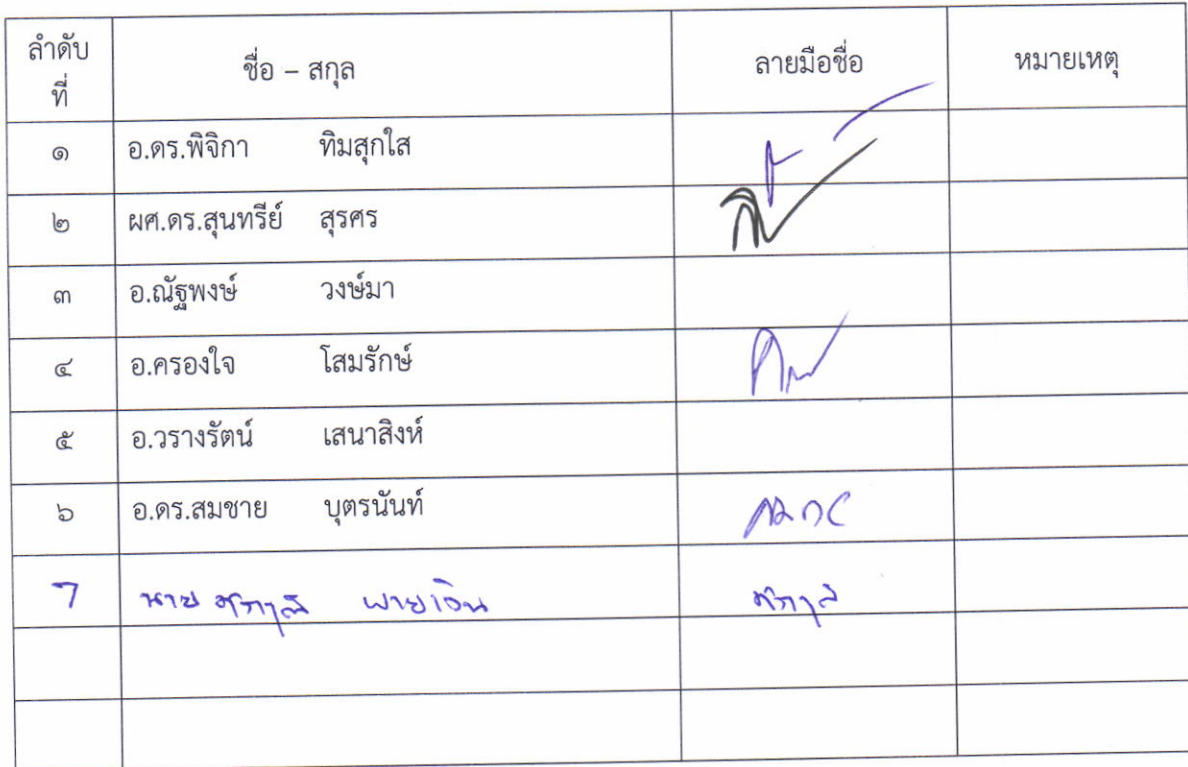 ลำดับที่ ชื่อ – สกุล ลายมือชื่อ หมายเหตุ
๑ อ.ดร.พิจิกา ทิมสุกใส
๒ ผศ.ดร.สุนทรีย์ สุรศร
๓ อ.ณัฐพงษ์ วงษ์มา
๔ อ.ครองใจ โสมรักษ์
๕ อ.วรางรัตน์ เสนาสิงห์
๖ อ.ดร.สมชาย บุตรนันท์
7 นาย